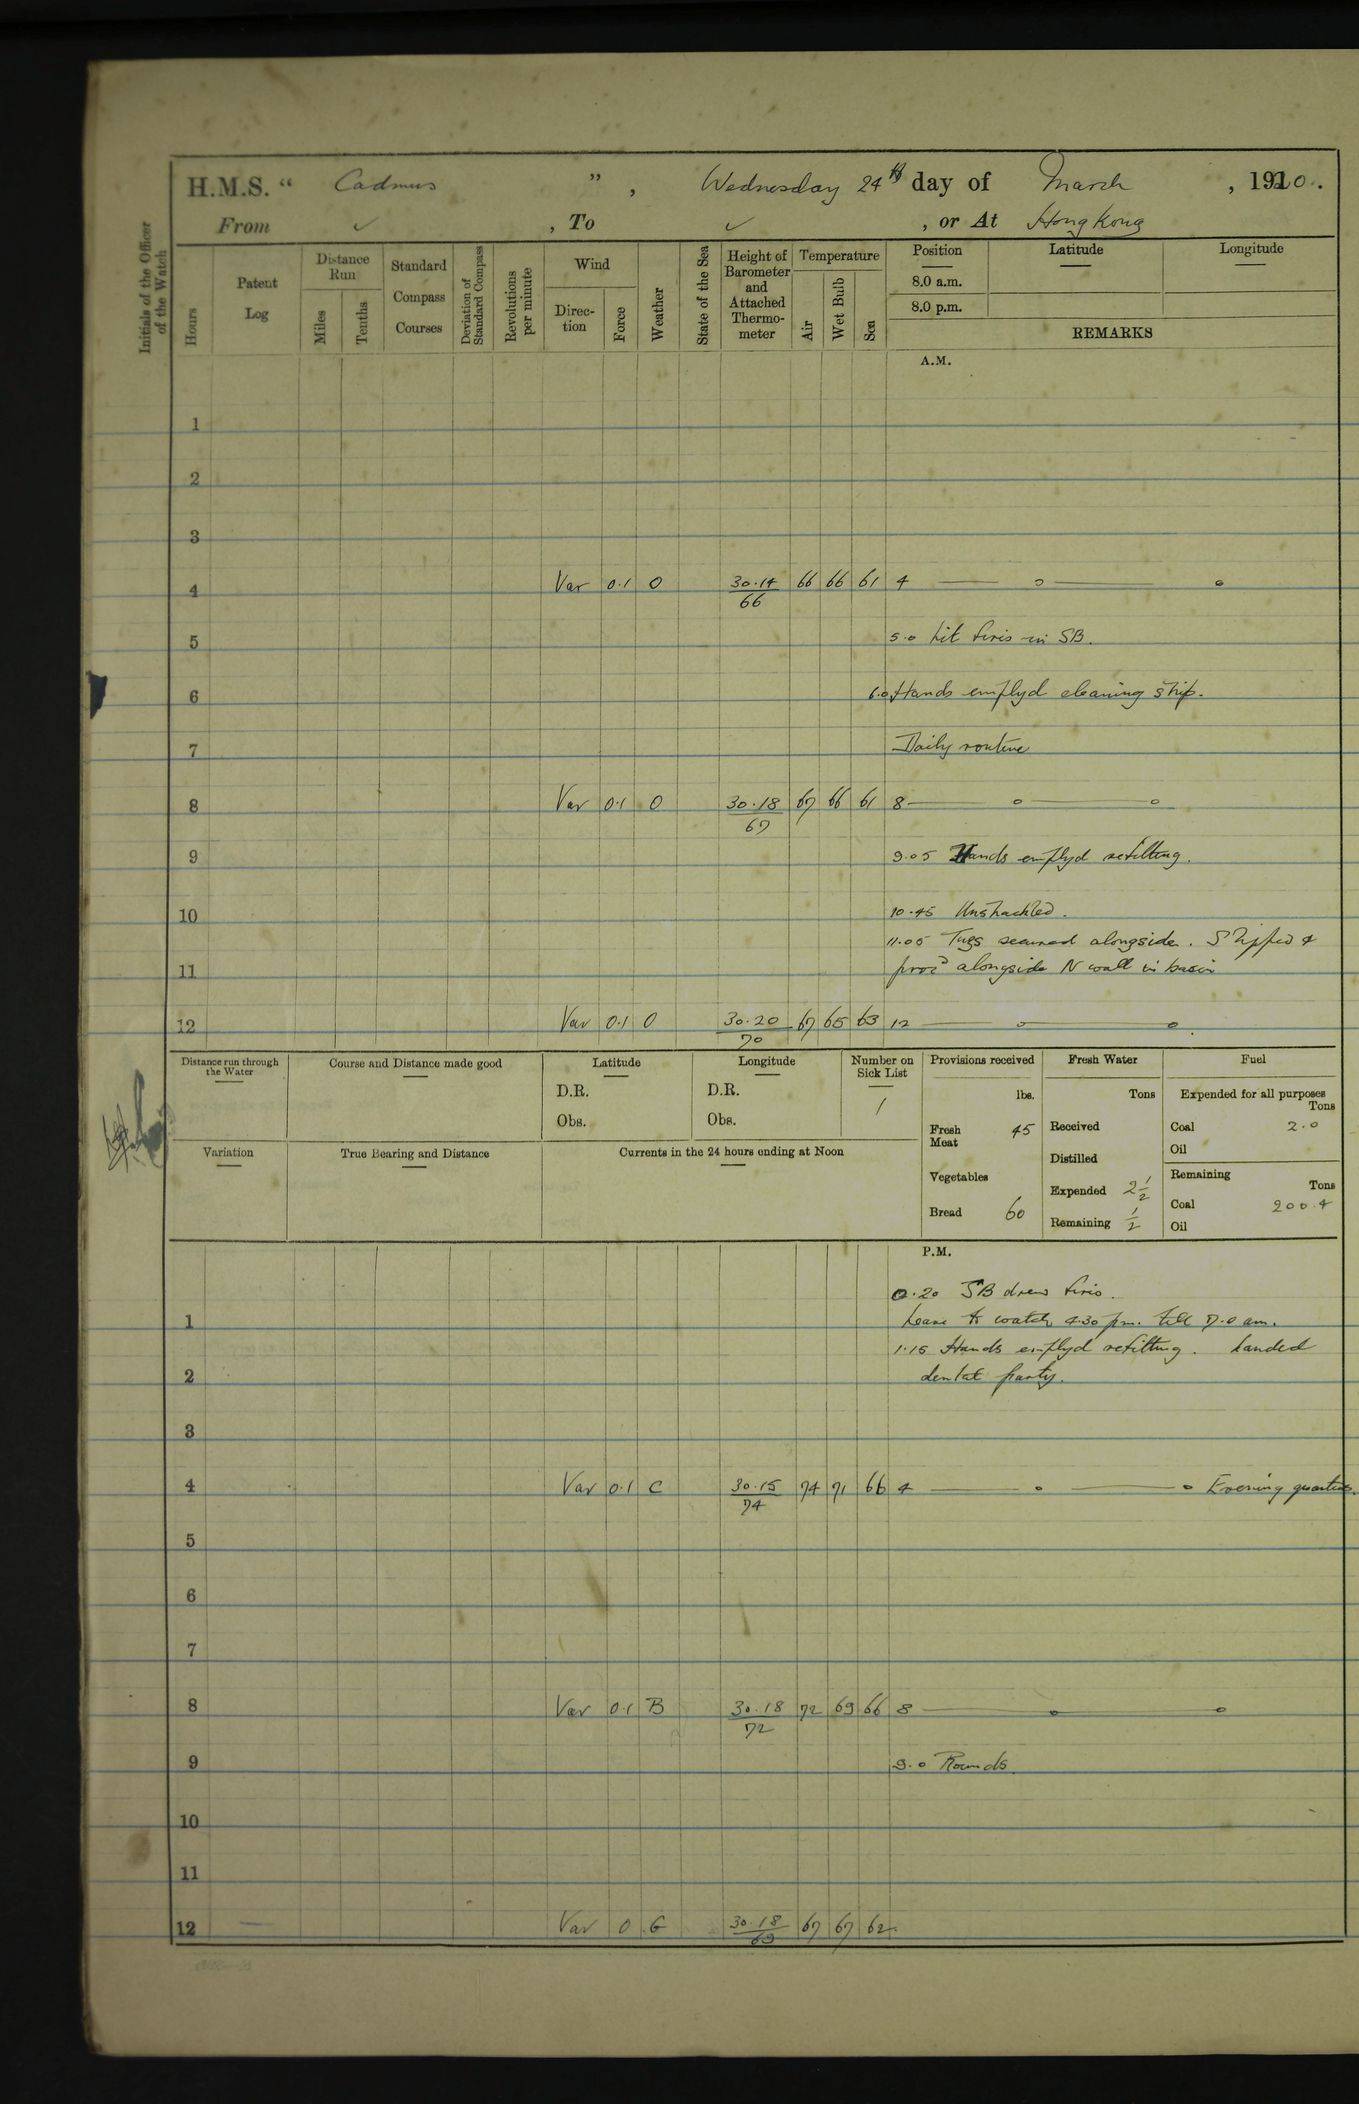 H.M.S. “ Cadmus ” , Wednesday 24th day of March , 1920.
From ✓ , To ✓ , or At Hong Kong
Initials of the Officer of the Watch
Hours
Patent Log
Distance Run
Miles
Tenths
Standard Compass Courses
Deviation of Standard Compass
Revolutions per minute
Wind
Direc-tion
Force
Weather
State of the Sea
Height of Barometer and Attached Thermo-meter
Temperature
Air
Wet Bulb
Sea
Position Latitude Longitude
8.0 a.m.
8.0 p.m.
REMARKS
A.M.
1
2
3
4 Var 0.1 O 30.14/66 66 66 61 4 — o — o
5 5.0 Lit fires in SB.
6 6.0 Hands employd cleaning ship.
7 Daily routine
8 Var 0.1 O 30.18/67 67 66 61 8 — o — o
9 9.05 Hands employd refitting.
10 10.45 Unshackled.
11.05 Tugs secured alongside. Slipped &
11 procd alongside N wall in basin
12 Var 0.1 O 30.20/70 67 65 63 12 — o — o
Distance run through the Water
Course and Distance made good
Latitude
D.R.
Obs.
Longitude
D.R.
Obs.
Number on Sick List
1
Provisions received
lbs.
Fresh Meat 45
Vegetables
Bread 60
Fresh Water
Tons
Received
Distilled
Expended 2½
Remaining ½
Fuel
Expended for all purposes
Tons
Coal 2.0
Oil
Remaining
Tons
Coal 200.4
Oil
Variation
True Bearing and Distance
Currents in the 24 hours ending at Noon
P.M.
0.20 SB drew fires.
1 Leave to watch 4.30 pm. till 7.0 am.
1.15 Hands employd refitting. Landed
2 dental party.
3
4 Var 0.1 C 30.15/74 74 71 66 4 — o — o Evening quarters.
5
6
7
8 Var 0.1 B 30.18/72 72 69 66 8 — o — o
9 9.0 Rounds.
10
11
12 Var 0 G 30.18/69 67 67 62